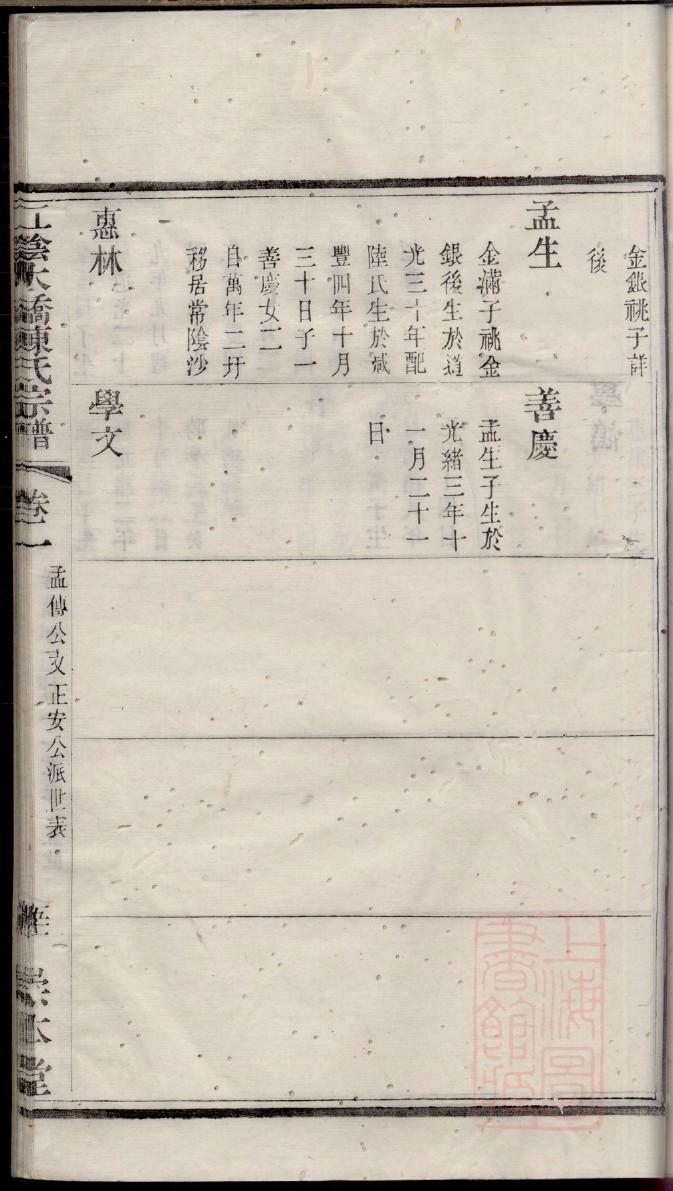 金銀祧子詳
後
孟生
金滿子祧金
銀後生於道
光三十年配
陸氏生於咸
豐四年十月
三十日子一
善慶女二
自萬年二圩
移居常陰沙
惠林
善慶
孟生子生於
光緒三年十
一月二十一
日
學文
江陰大橋陳氏宗譜
卷二
孟傳公支正安公派世表
崇本堂
上海圖書館藏